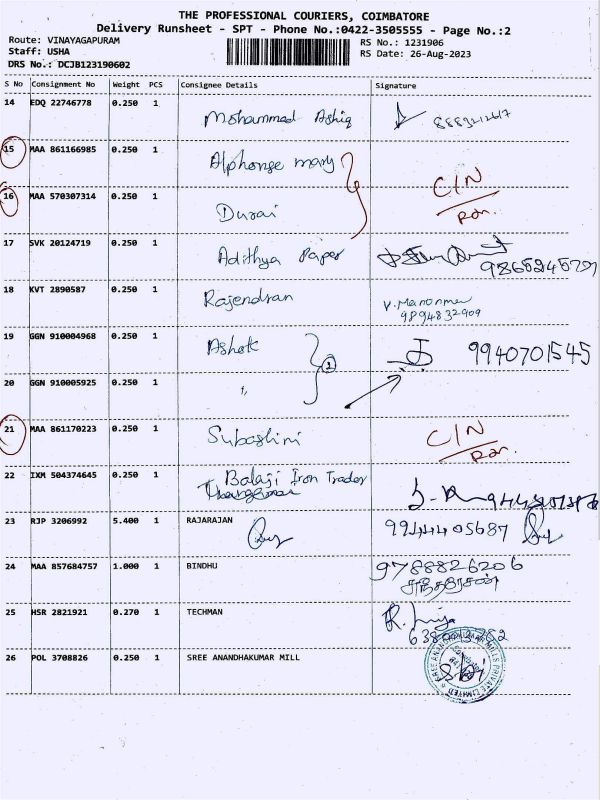 THE PROFESSIONAL COURIERS, COIMBATORE
Delivery Runsheet - SPT - Phone No.:0422-3505555 - Page No.:2
Route: VINAYAGAPURAM
Staff: USHA
DRS No.: DCJB123190602
RS No.: 1231906
RS Date: 26-Aug-2023
S No Consignment No Weight PCS Consignee Details Signature
14 EDQ 22746778 0.250 1 Mohammad Ashiq
15 MAA 861166985 0.250 1 Alphonse mary C/N
16 MAA 570307314 0.250 1 Durai
17 SVK 20124719 0.250 1 Adithya Paper
18 KVT 2890587 0.250 1 Rajendran
9894832909
19 GGN 910004968 0.250 1 Ashok 2 9940701545
20 GGN 910005925 0.250 1 "
21 MAA 861170223 0.250 1 Subashini C/N
22 IXM 504374645 0.250 1 Balaji Iron Trader
23 RJP 3206992 5.400 1 RAJARAJAN 9944405687
24 MAA 857684757 1.000 1 BINDHU 9788826206
25 HSR 2821921 0.270 1 TECHMAN
26 POL 3708826 0.250 1 SREE ANANDHAKUMAR MILL